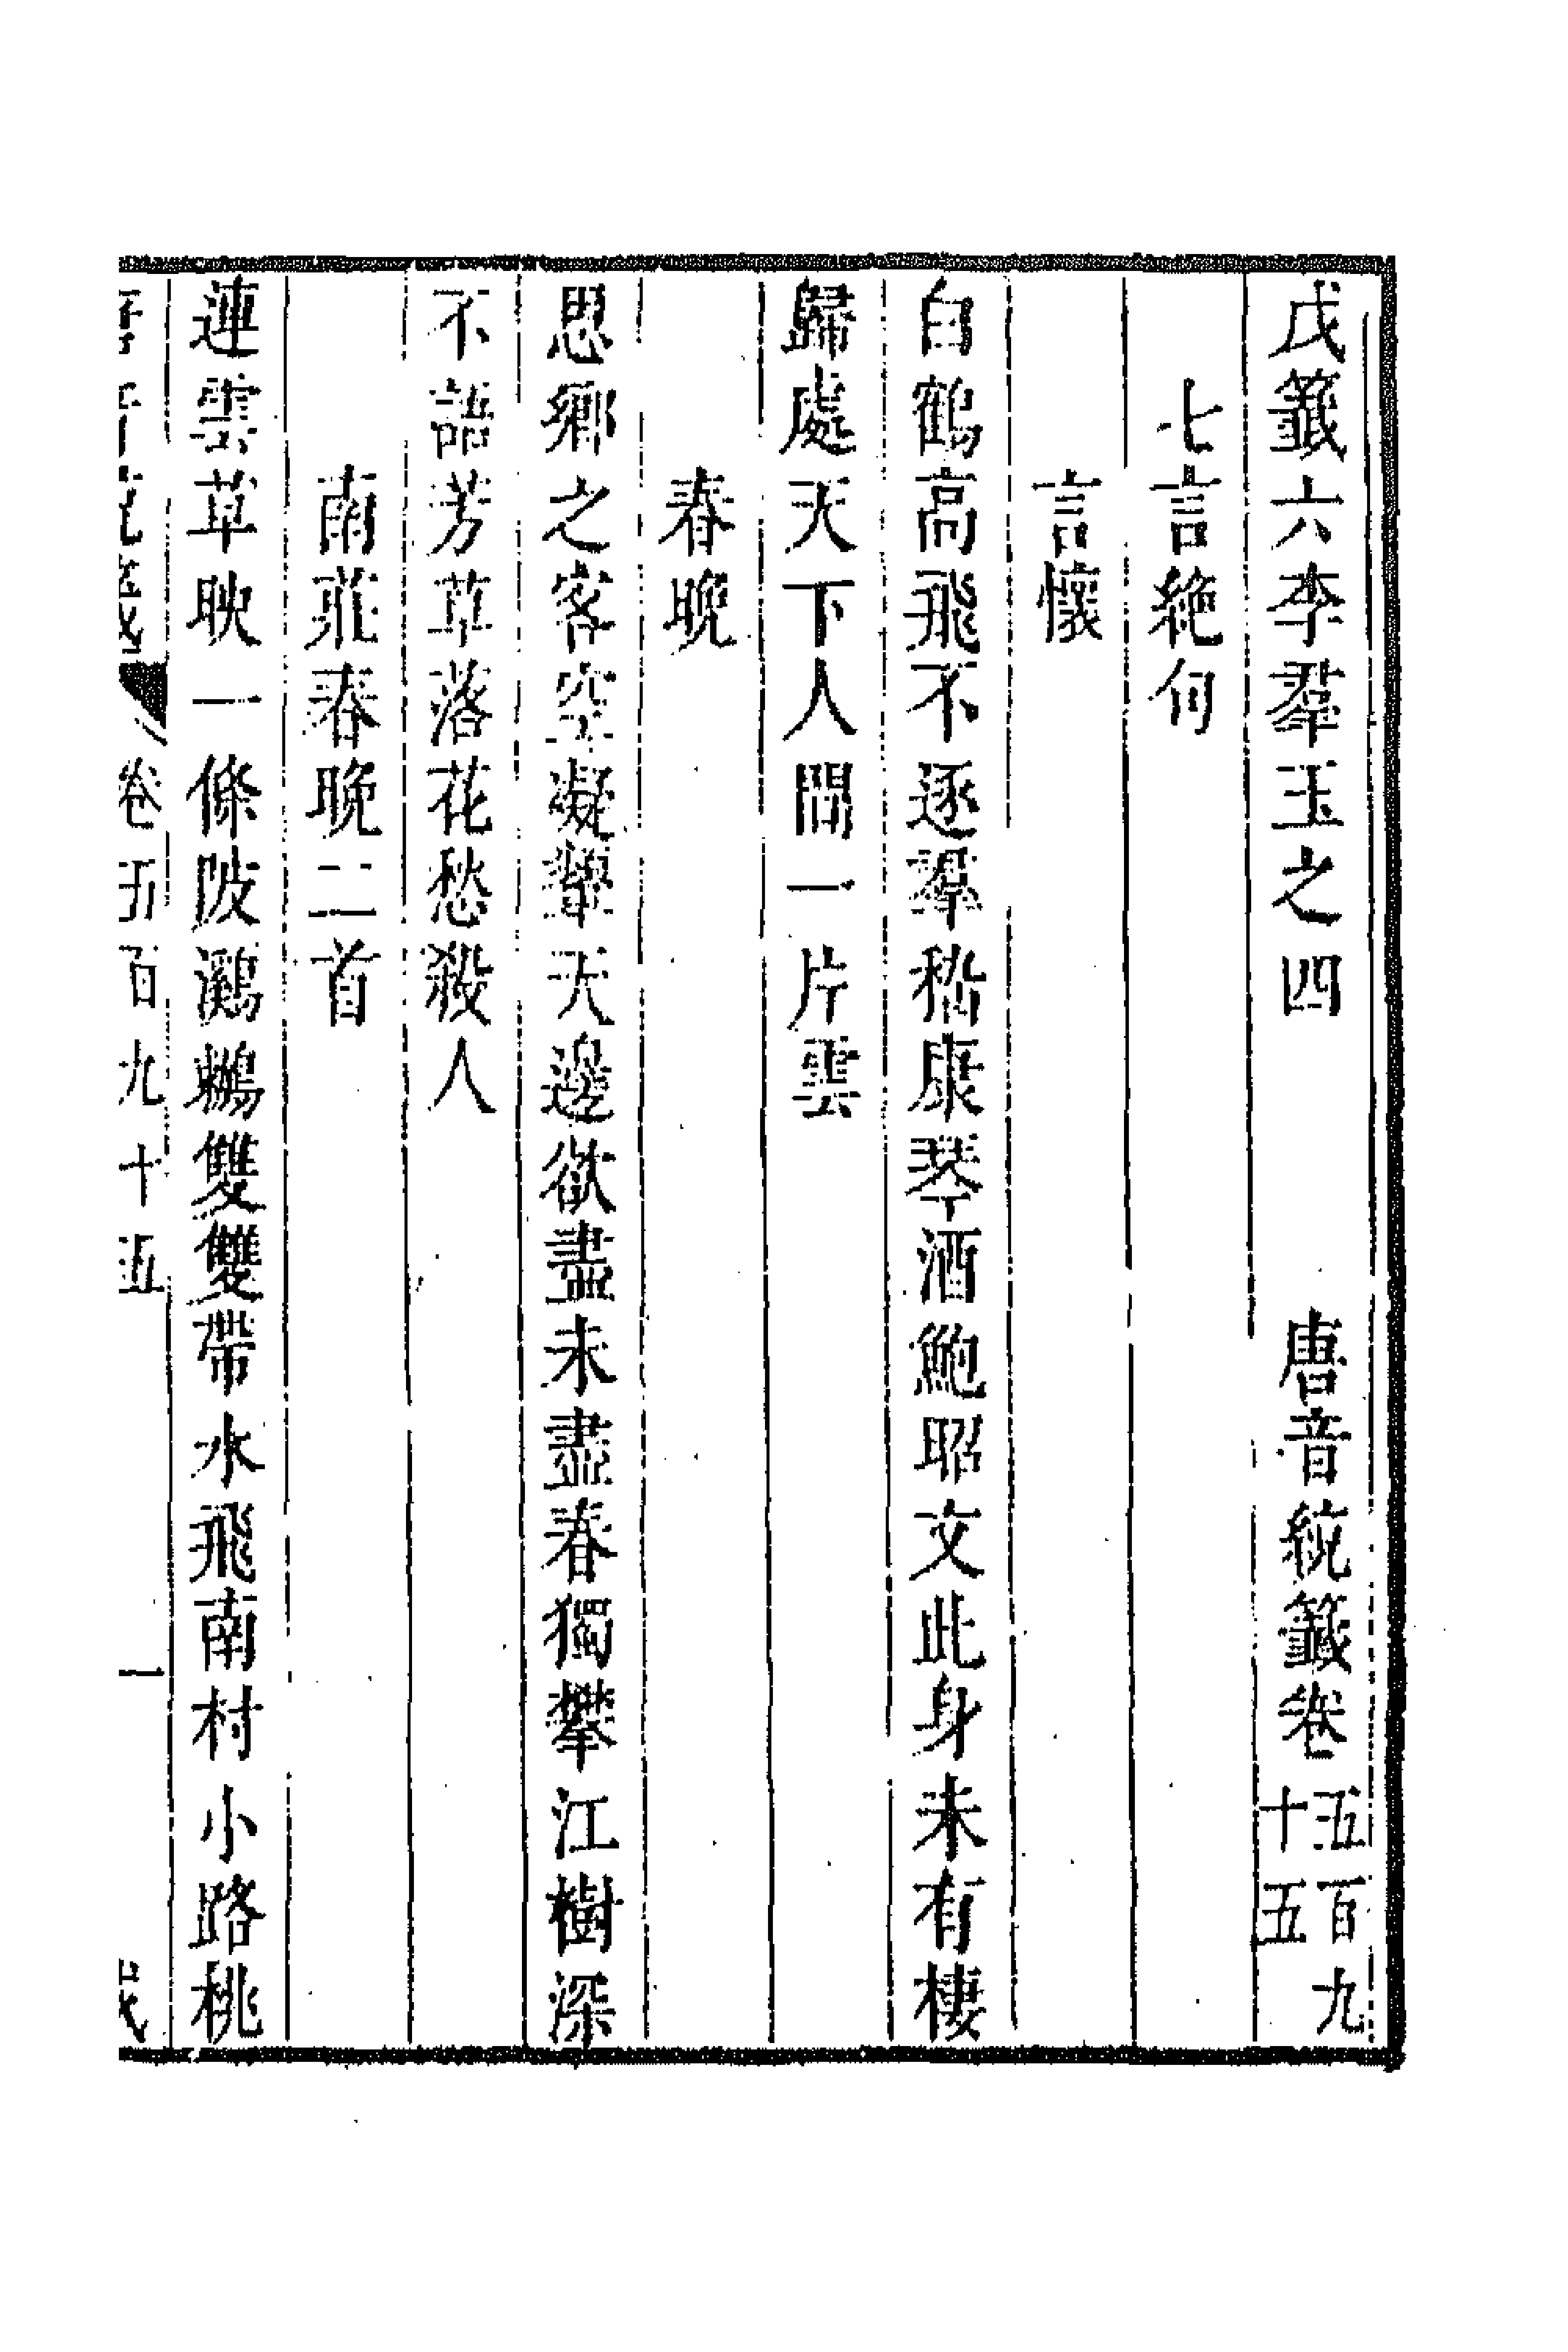 戊籖六李羣玉之四　　　唐音統籖卷五百九十五
七言絶句
言懷
白鶴高飛不逐羣嵇康琴酒鮑昭文此身未有棲
歸處天下人間一片雲
春晚
思鄉之客空凝顰天邊欲盡未盡春獨攀江樹深
不語芳草落花愁殺人
南莊春晚二首
連雲草映一條陂鸂鶒雙雙帶水飛南村小路桃
卷五百九十五　一